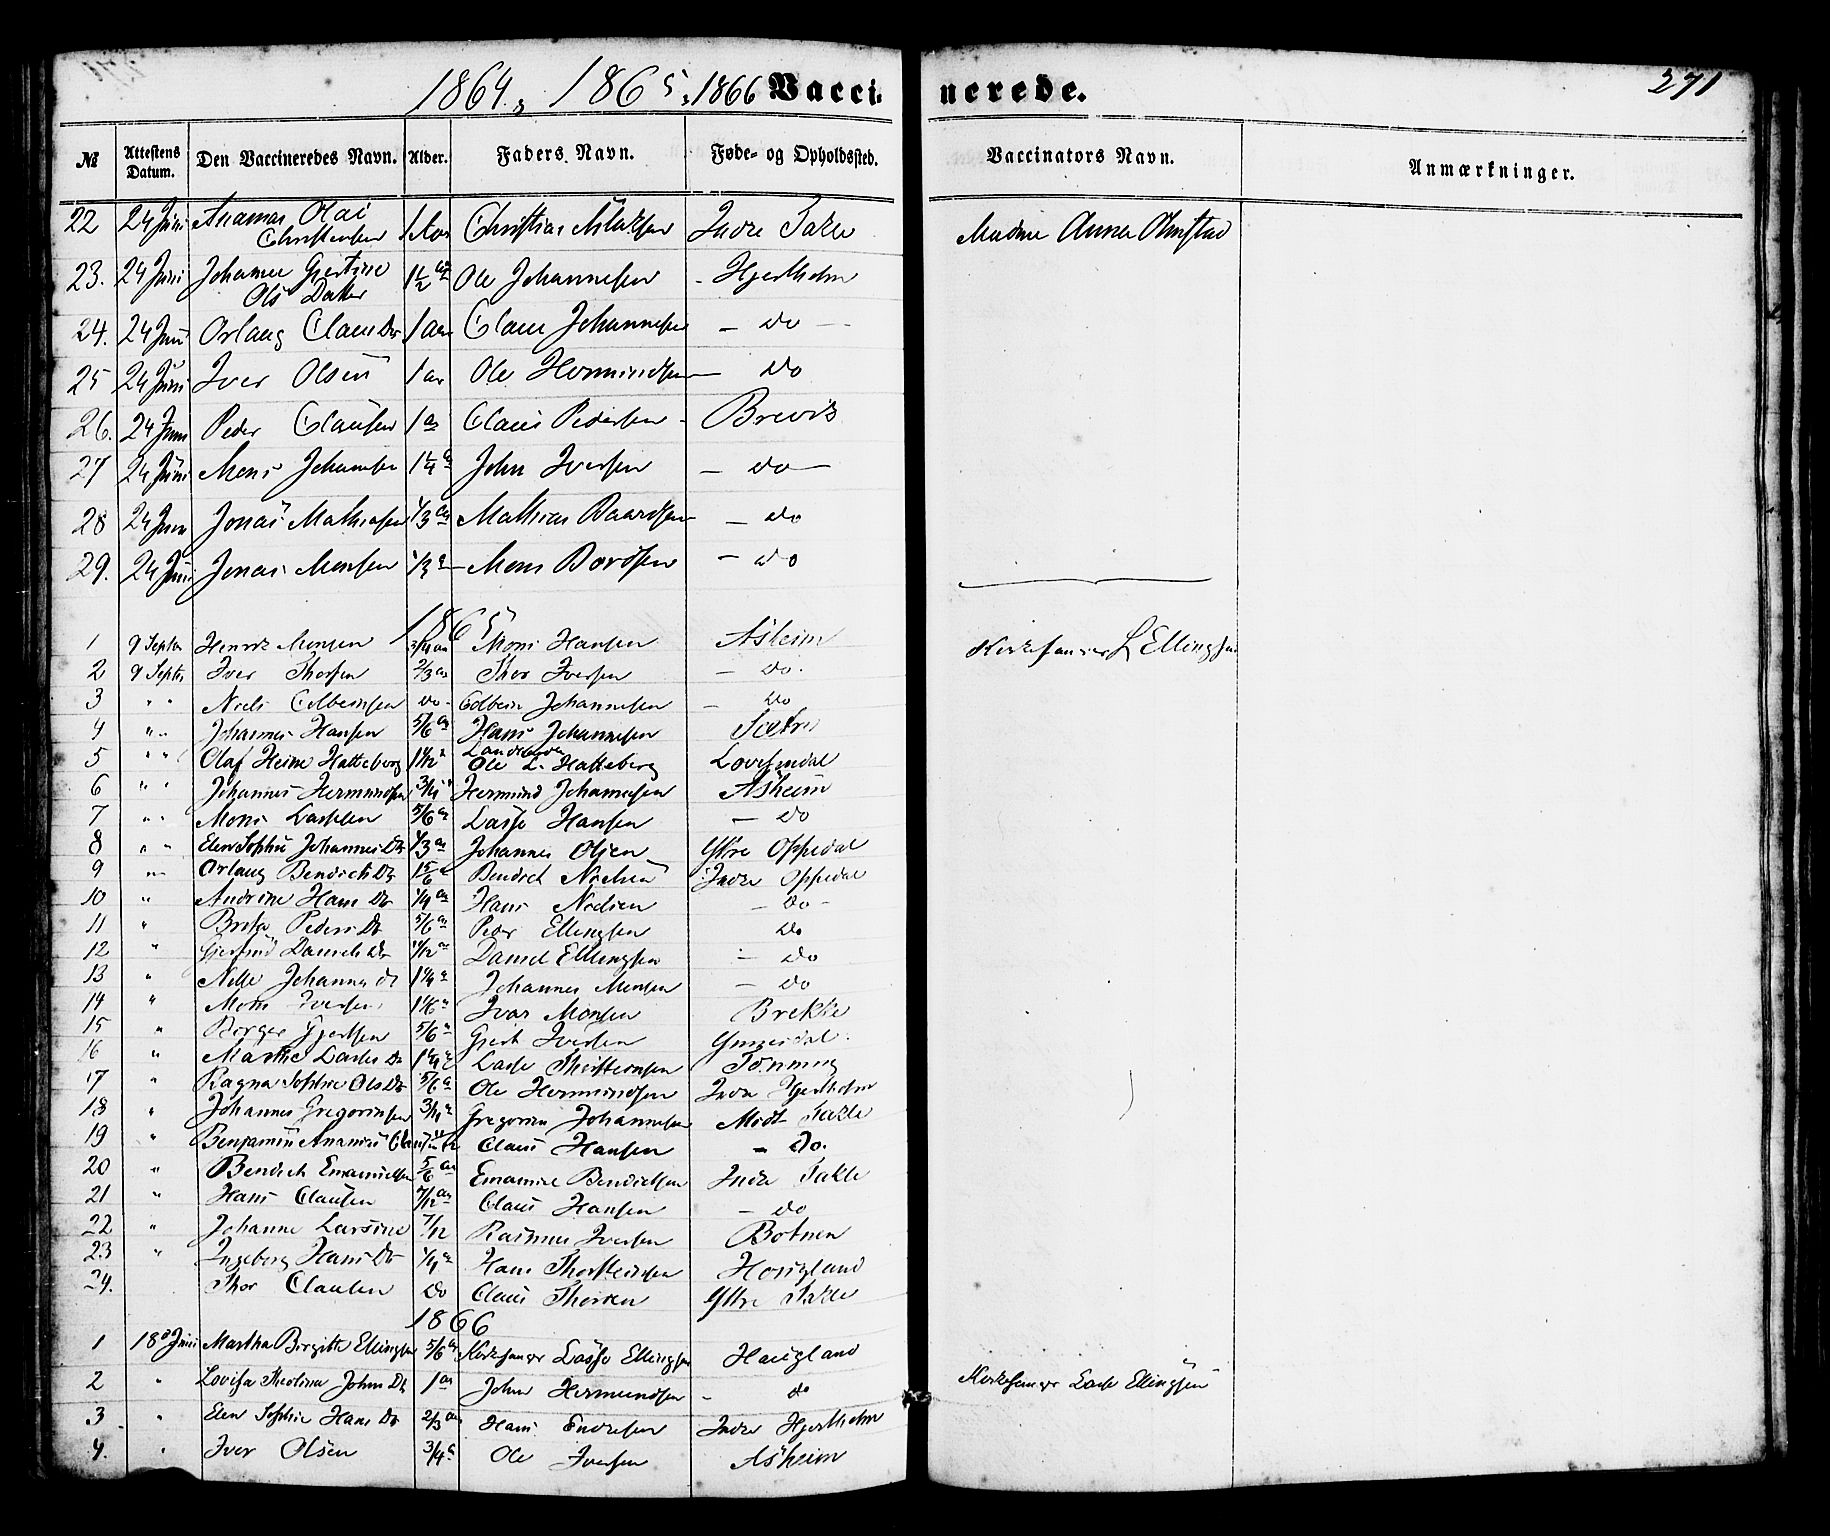 1864, 1865, 1866 Vaccinerede. 271
№ Attestens Datum. Den Vaccineredes Navn. Alder. Faders Navn. Føde- og Opholdssted. Vaccinators Navn. Anmærkninger.
22 24 Juni Ananias Olai Christensen 1 Aar Christian Indre Takle Anna
23. 24 Juni Johanne Gjertine Ols Datter 1½ Ole Johannesen - Hjertholm
24. 24 Juni Orlaug Claus Dr 1 aar Claus Johannesen — do —
25 24 Juni Iver Olsen 1 ar Ole Hermundsen — do
26. 24 Juni Peder Clausen 1 a Claus Pedersen - Brevik
27 24 Juni Mons Johannesen 1¼ a John Iversen — do —
28 24 Juni Jonas Mathiasen 1/3 ar Mathias Baardsen — do
29. 24 Juni Jonas Monsen 1/3 a Mons Bordsen — do
1865
1 9 Septbr Henrik Monsen 3/4 ar Mons Hansen Asheim Kirkesanger L Ellingsen
2 9 Septbr Iver Thorsen 2/3 ar Thor Iversen — do.
3 " " Niels Colbeinsen do - Colbein Johannesen — do
4 " " Johannes Hansen 5/6 ar Hans Johannesen Sætre
5 " " Olaf Heine Hatteberg 1 1/12 Ole L. Hatteberg
6 " " Johannes Hermundsen 3/4 Hermund Johannesen Asheim
7 " " Mons Lassesen 5/6 a Lasse Hansen — do
8 " " Elen Sophie Johannes Dr 1/3 ar Johannes Olsen Yttre Oppedal
9 " " Orlaug Bendicts Dr 1 5/6 a Bendict Nielsen Indre Oppedal
10 " Andrine Hans Dr 1/4 ar Hans Nielsen — do -
11 " Brita Peders Dr 5/6 ar Peder Ellingsen do
12 " Gjertrud Daniels Dr 11/12 a Daniel Ellingsen — do
13 " Nille Johannes dr 1 1/4 a Johannes Monsen — do
14 " Mons Iversen 1 1/6 a Ivar Monsen Brekke
15 " Børger Gjertsen 5/6 a Gjert Iversen
16 " Marthe Lasses Dr 1 1/4 a Lasse Thorsteinsen Tønning
17 " Ragna Sophie Ols Dr 5/6 a Ole Hermundsen Indre Hjertholm
18 " Johannes Gregoriusen 3/4 a Gregorius Johannesen Midt Takle
19 " Benjamin Ananias Clausen 7/12 Claus Hansen — do.
20 " Bendict Emanuelsen 5/6 ar Emanuel Bendictsen Indre Takle
21 " Hans Clausen 7/12 ar Claus Hansen — do
22 " Johanne Larsine 7/12 Rasmus Iversen Botnen
23 " Ingeborg Hans Dr 1/4 a Hans Thorsteinsen Hougland
24. Thor Clausen do Claus Thorsen Yttre Takle
1866
1 18d Juni Martha Birgitte Ellingsen 5/6 a Kirkesanger Lasse Ellingsen Haugland
2 " Lovisa Theoline Johns Dr 1 ar John Hermundsen - do Kirkesanger Lasse Ellingsen
3 " Elen Sophie Hans Dr 2/3 ar Hans Endresen Indre Hjertholm
4. " Iver Olsen 3/4 a Ole Iversen Asheim